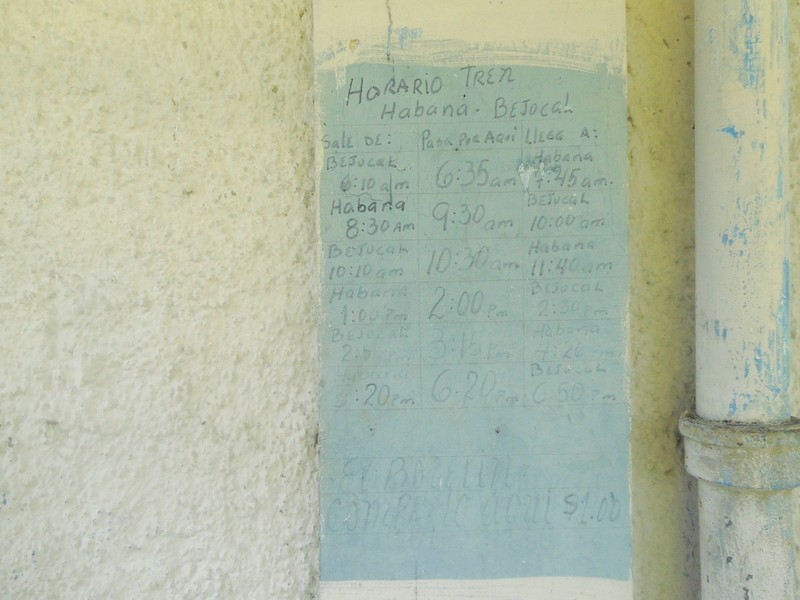 HORARIO TREN
Habana - BEJUCAL
Sale DE: Pasa Por Aqui LLega A:
BEJUCAL Habana
6:10 am 6:35 am 7:45 am.
Habana BEJUCAL
8:30 Am 9:30 am 10:00 am
BEJUCAL Habana
10:10 am 10:30 am 11:40 am
Habana BEJUCAL
1:00 Pm 2:00 Pm 2:30 Pm
BEJUCAL Habana
3:15 Pm
Habana BEJUCAL
:20 Pm 6:20 Pm 6:50 Pm
El BOLETIN
aqui $1.00